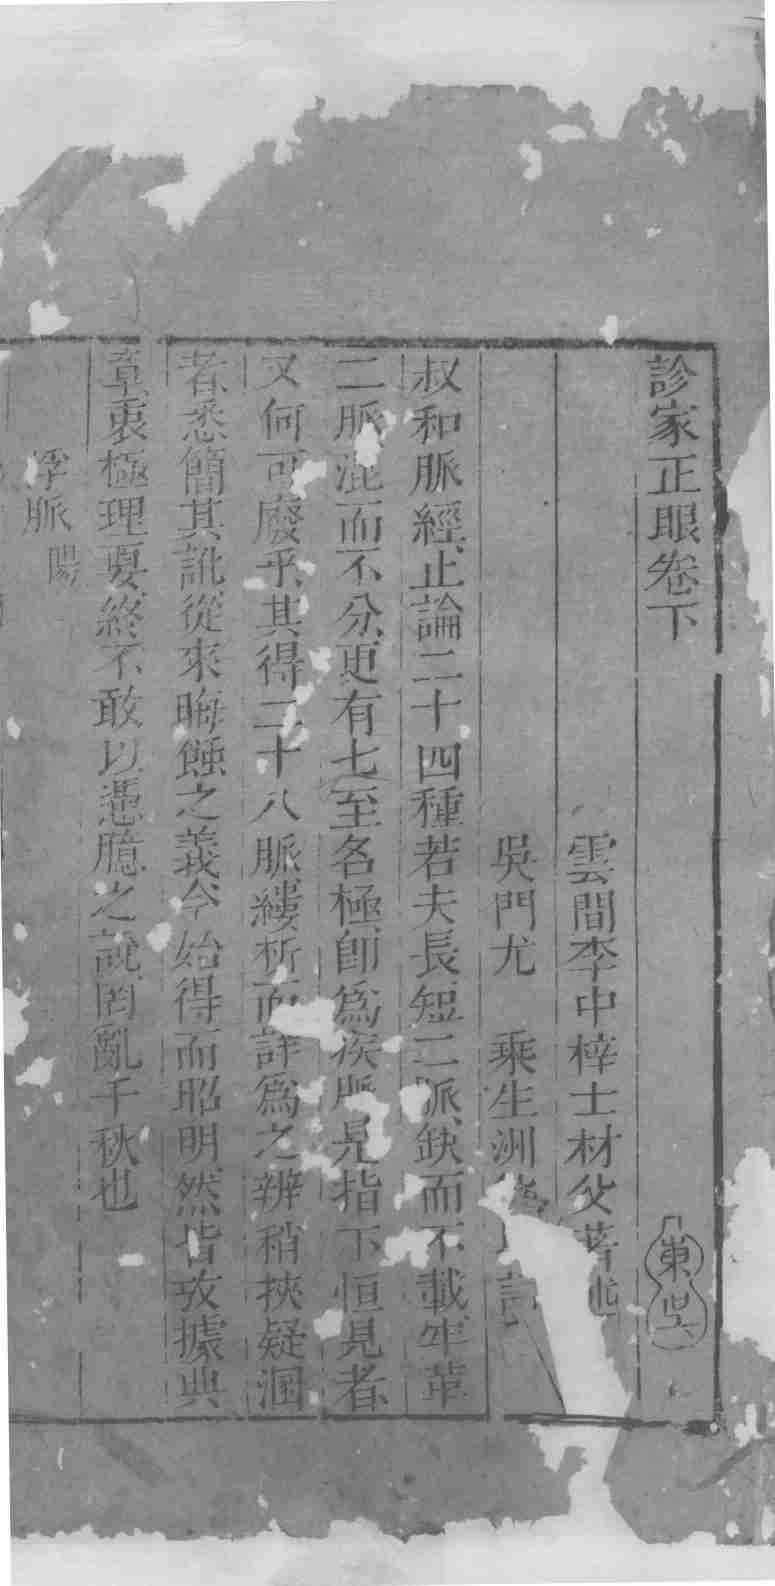 診家正眼卷下
雲間李中梓士材父著
吳門尤 乘生洲
叔和脈經止論二十四種若夫長短二脈缺而不載牢革
二脈混而不分更有七至名極卽爲疾脈是指下恒見者
又何可廢乎其得二十八脈縷析而詳爲之辨稍挾疑溷
者悉簡其訛從來晦蝕之義今始得而昭明然皆攷據典
章衷極理要終不敢以憑臆之說罔亂千秋也
浮脈 陽
東吳